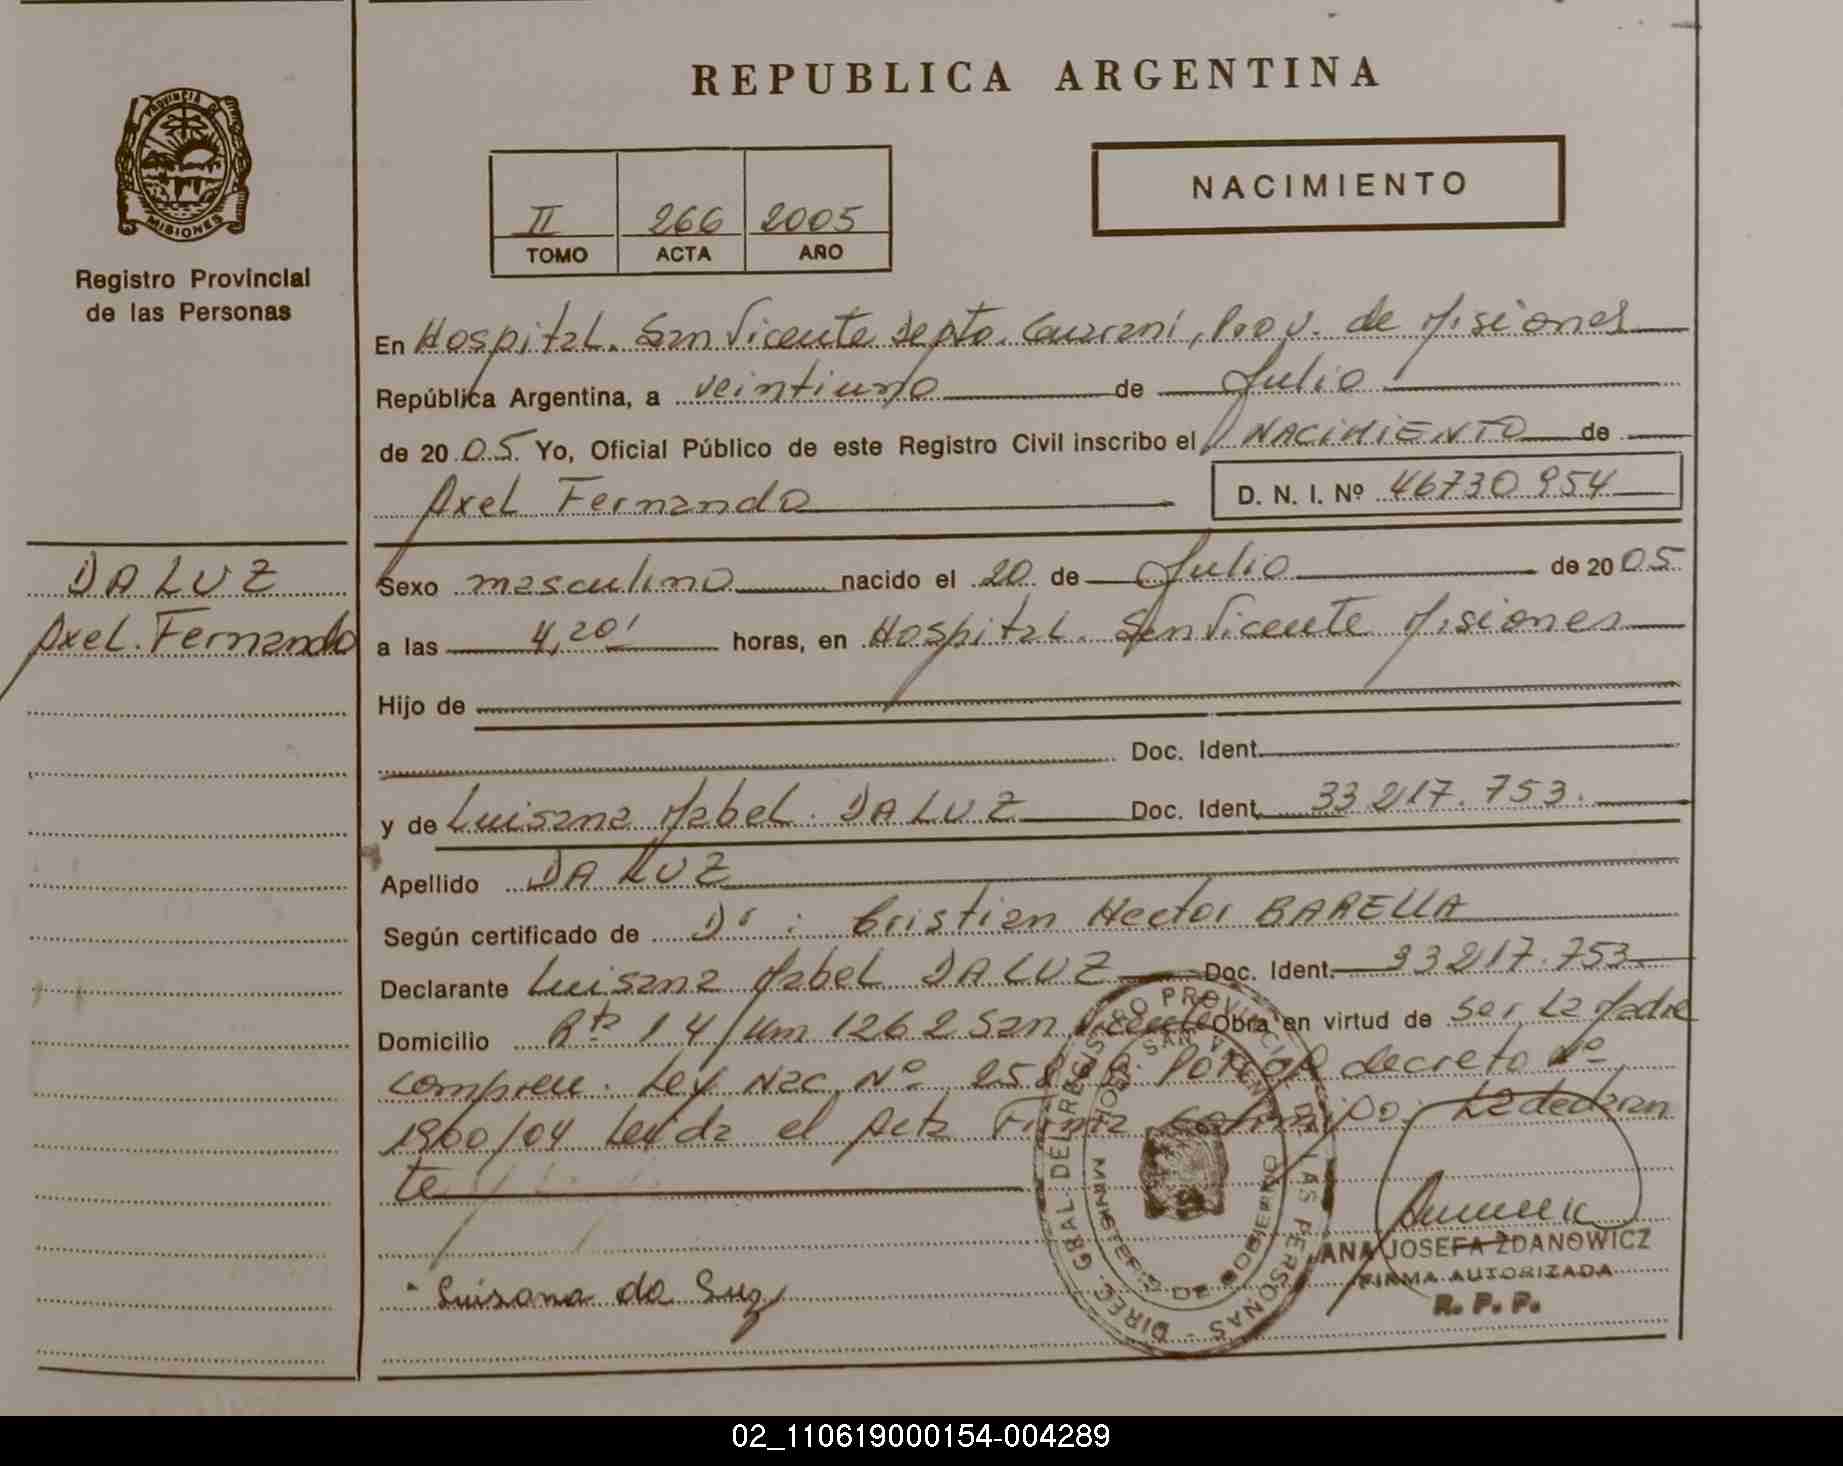 REPUBLICA ARGENTINA
PROVINCIA DE
MISIONES
Registro Provincial
de las Personas
II 266 2005
TOMO ACTA AÑO
NACIMIENTO
En Hospital. San Vicente Depto. Guarani, Prov. de Misiones
República Argentina, a veintiuno de Julio
de 2005 Yo, Oficial Público de este Registro Civil inscribo el NACIMIENTO de
Axel Fernando
D. N. I. Nº 46730954
DA LUZ
Axel. Fernando
Sexo masculino nacido el 20 de Julio de 2005
a las 4,20' horas, en Hospital. San Vicente Misiones
Hijo de
Doc. Ident.
y de Luisana Mabel. DA LUZ Doc. Ident. 33217.753.
Apellido DA LUZ
Según certificado de Dr: Cristian Hector BARELLA
Declarante Luisana Mabel DA LUZ Doc. Ident. 33217.753
Domicilio Rta 14 Km 1262 San Vicente Obra en virtud de ser La Madre
Ley Nac. Nº decreto Nº
1900/04 Leyda el Acta Firma conmigo: La declaran
te
Luisana da Luz
DIREC. GRAL. DEL REGISTRO PROVINCIAL DE LAS PERSONAS
MINISTERIO DE GOBIERNO
ANA JOSEFA ZDANOWICZ
FIRMA AUTORIZADA
R. P. P.
02_110619000154-004289